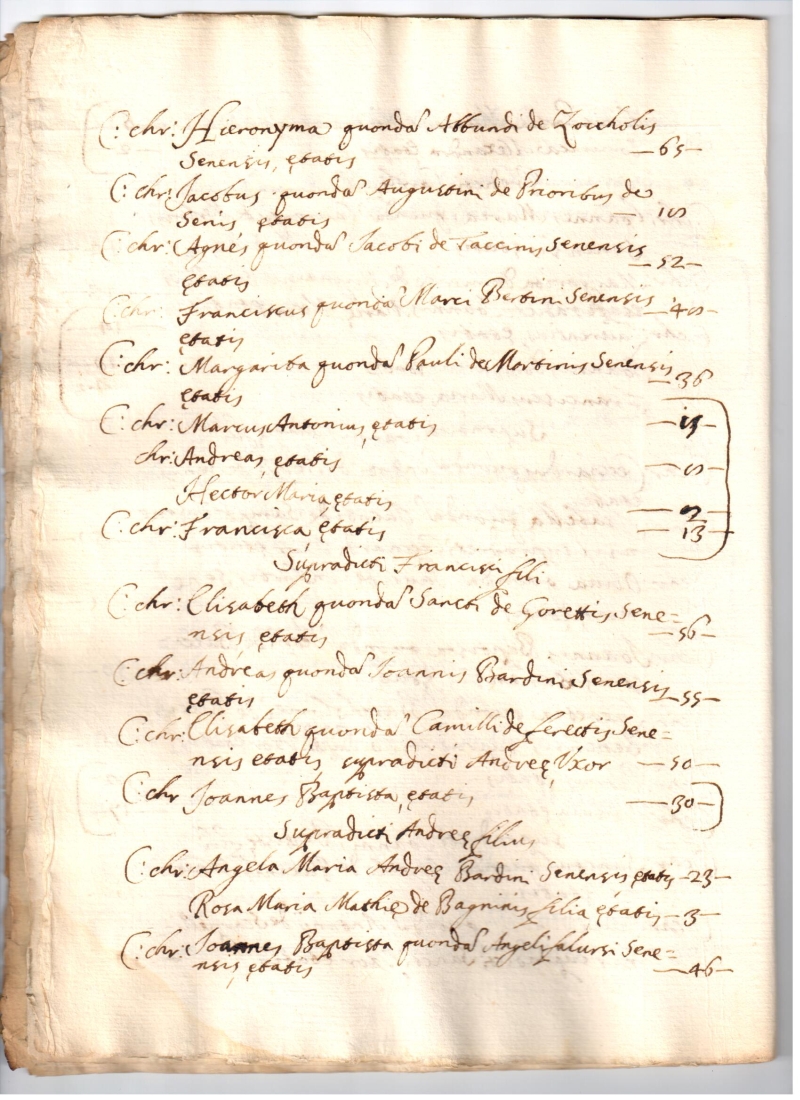 C: chr: Hieronyma quonda Abbundi de Zoccholis
Senensis, ętatis —65—
C: chr: Jacobus quonda Augustini de Prioribus de
Senis ętatis
C: chr: Agnes quonda Jacobi de Taccinis Senensis —52—
ętatis
C: chr: Franciscus quonda Marci Bertini Senensis
ętatis
C: chr: Margarita quonda Pauli de Martinis Senensis —36
ętatis
C: chr: Marcus Antonius, ętatis
chr: Andreas, ętatis
Hector Maria ętatis
C: chr: Francisca ętatis —13—
Supradicti Francisci fili
C: chr: Elisabeth quonda Sancti de Gorettis Sene=
nsis ętatis —56—
C: chr: Andreas quonda Joannis Bardini Senensis —55—
ętatis
C: chr: Elisabeth quonda Camilli de Sene=
nsis etatis, supradicti Andreę Vxor —50—
C: chr Joannes Baptista, ętatis —30—
Supradicti Andreę filius
C: chr: Angela Maria Andreę Bardini Senensis ętatis —23—
Rosa Maria Mathię de Bagninis filia ętatis —3—
C: chr: Joannes Baptista quonda Angeli Sene=
nsis ętatis —46—